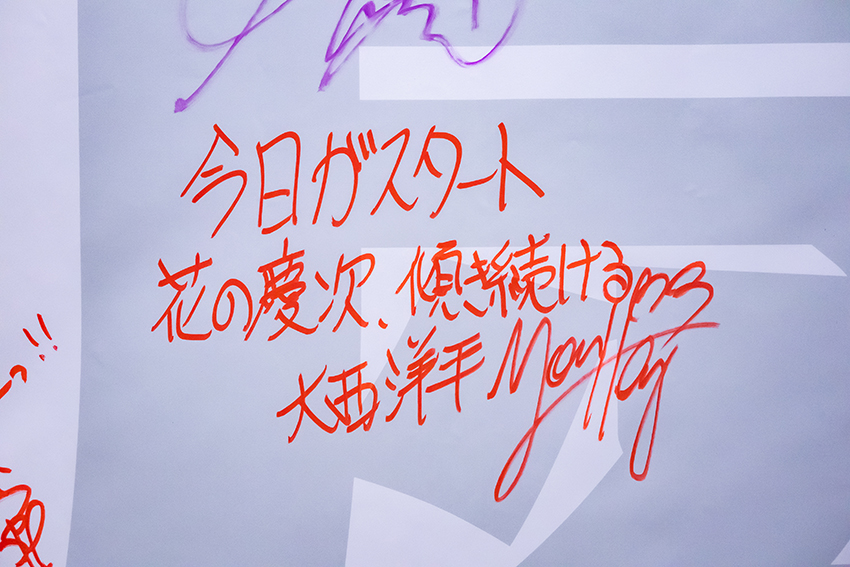 今日がスタート
花の慶次、傾き続ける
大西洋平
っ!!